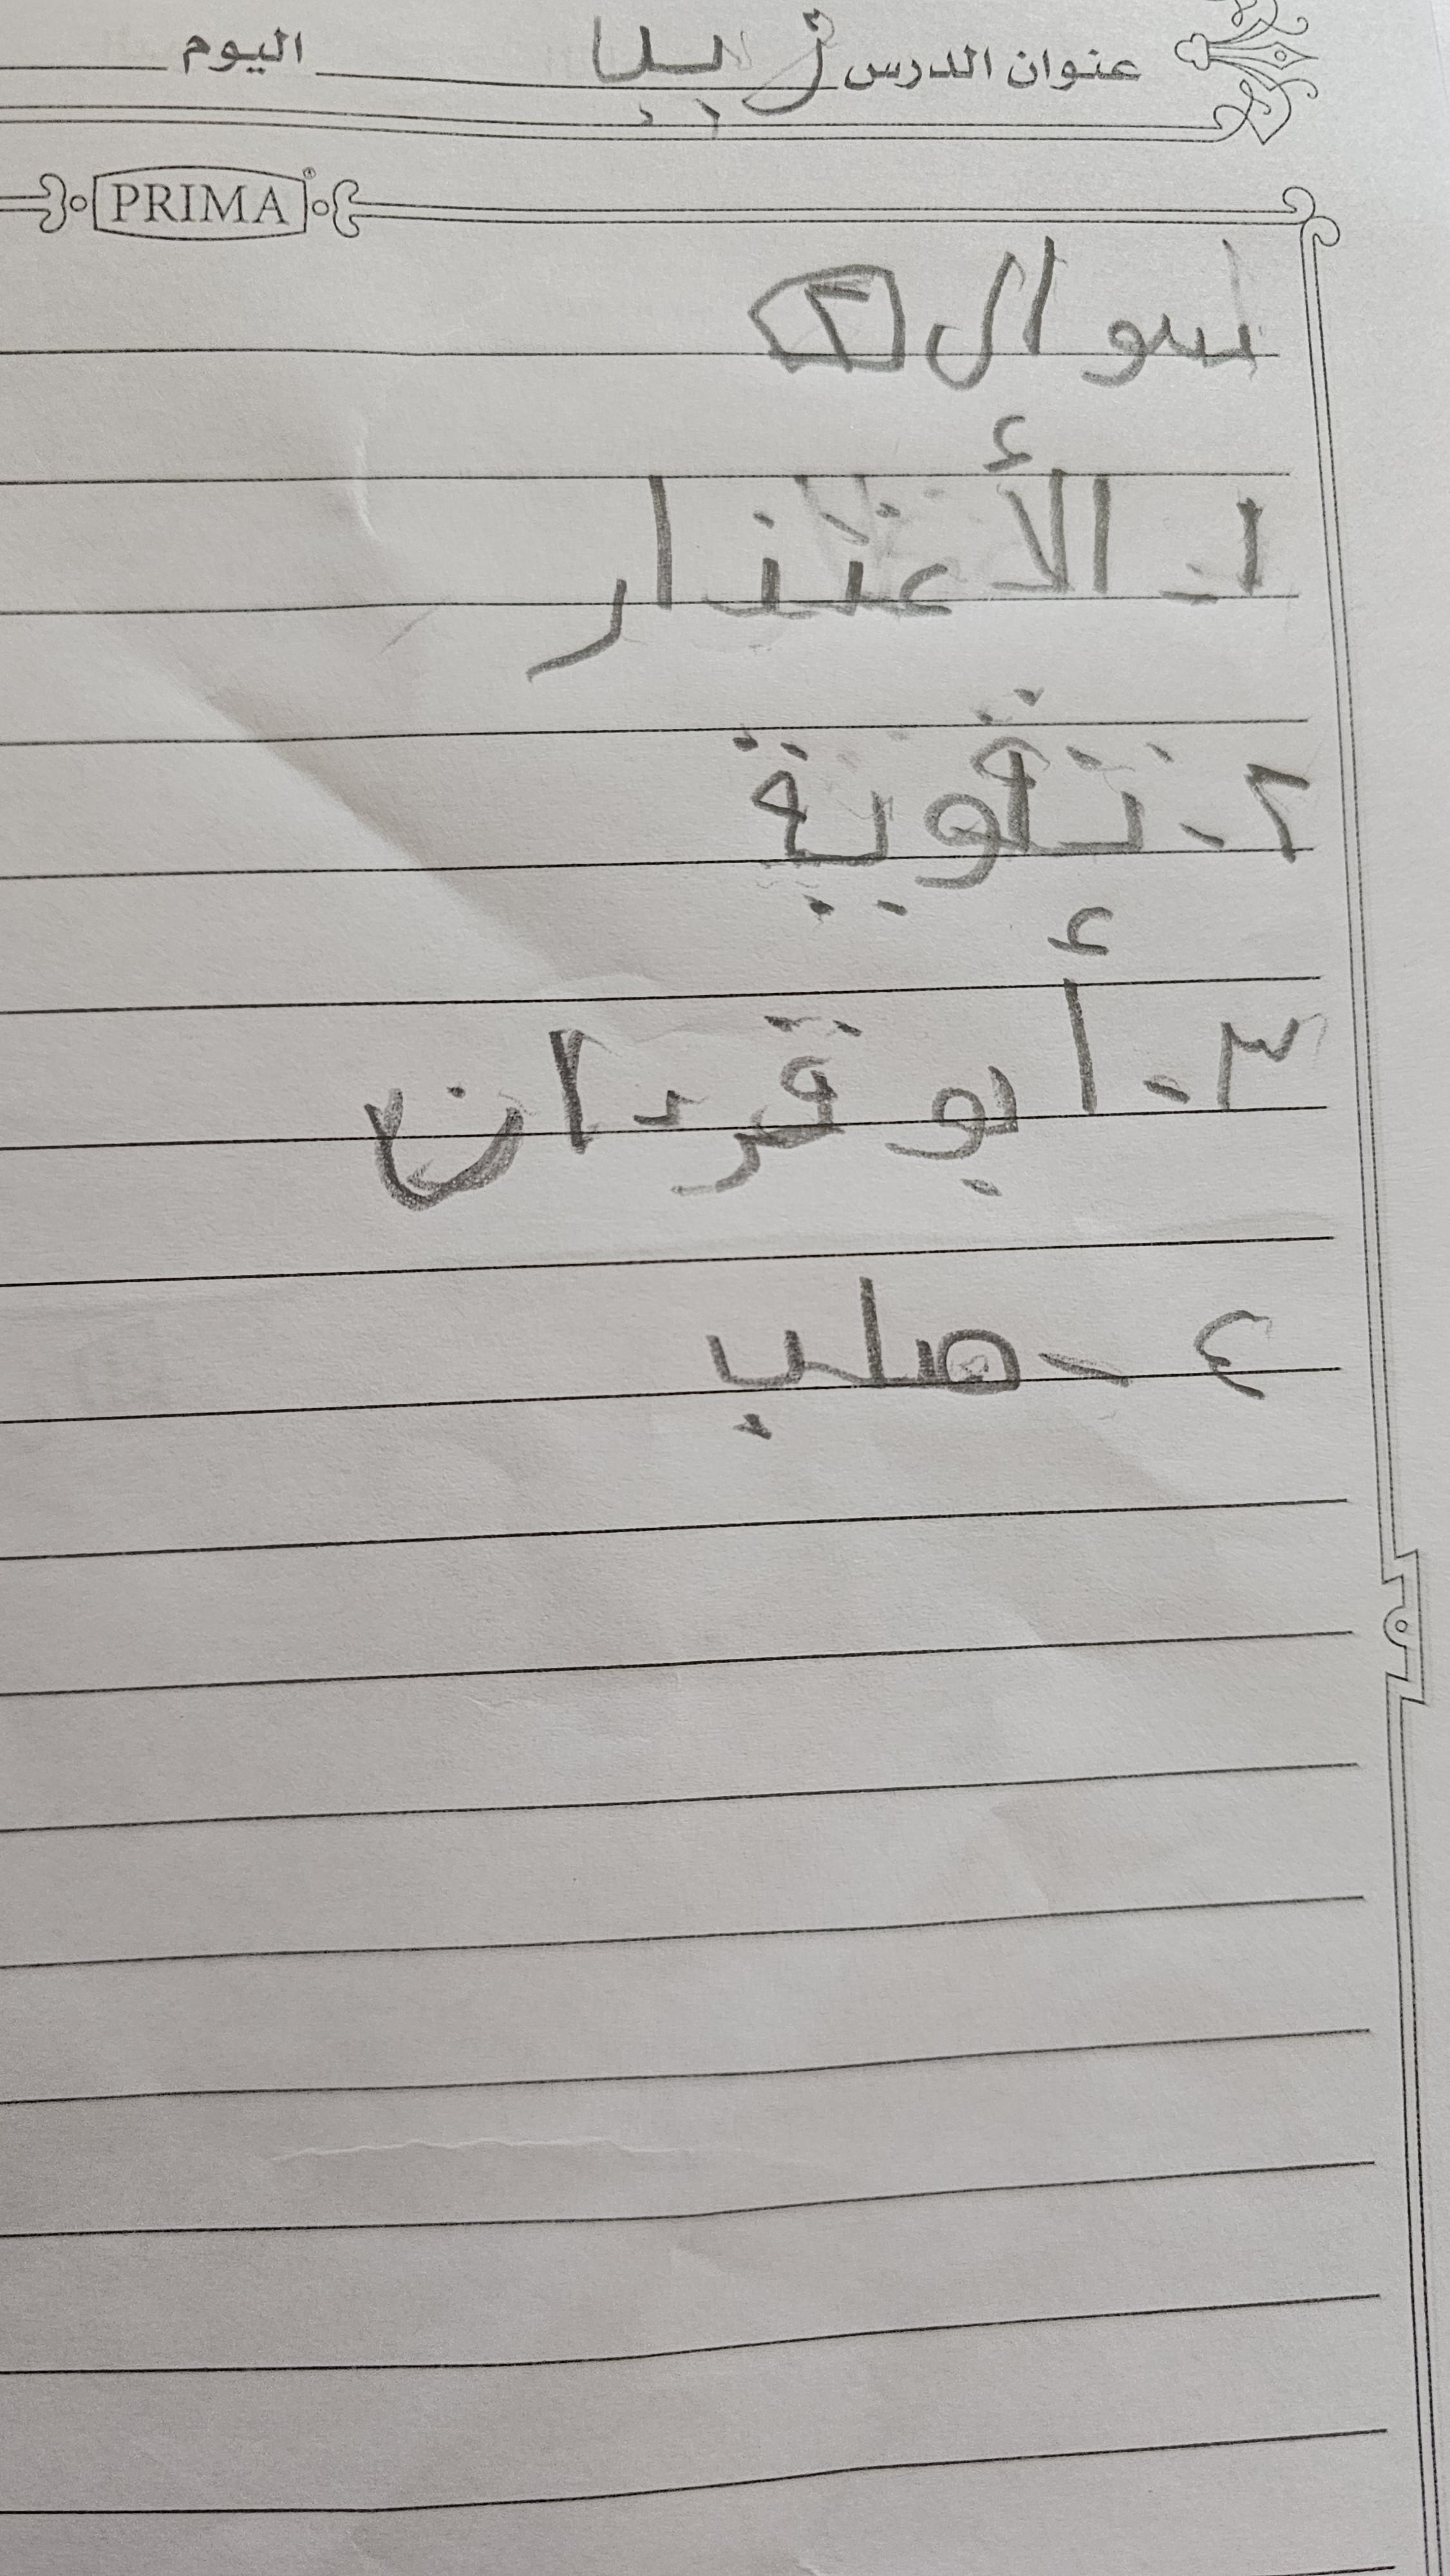 عنوان الدرس اليوم
PRIMA
سوال ٢
١- الأعتذار
٢- تقوية
٣- أبو قردان
٤- صلب